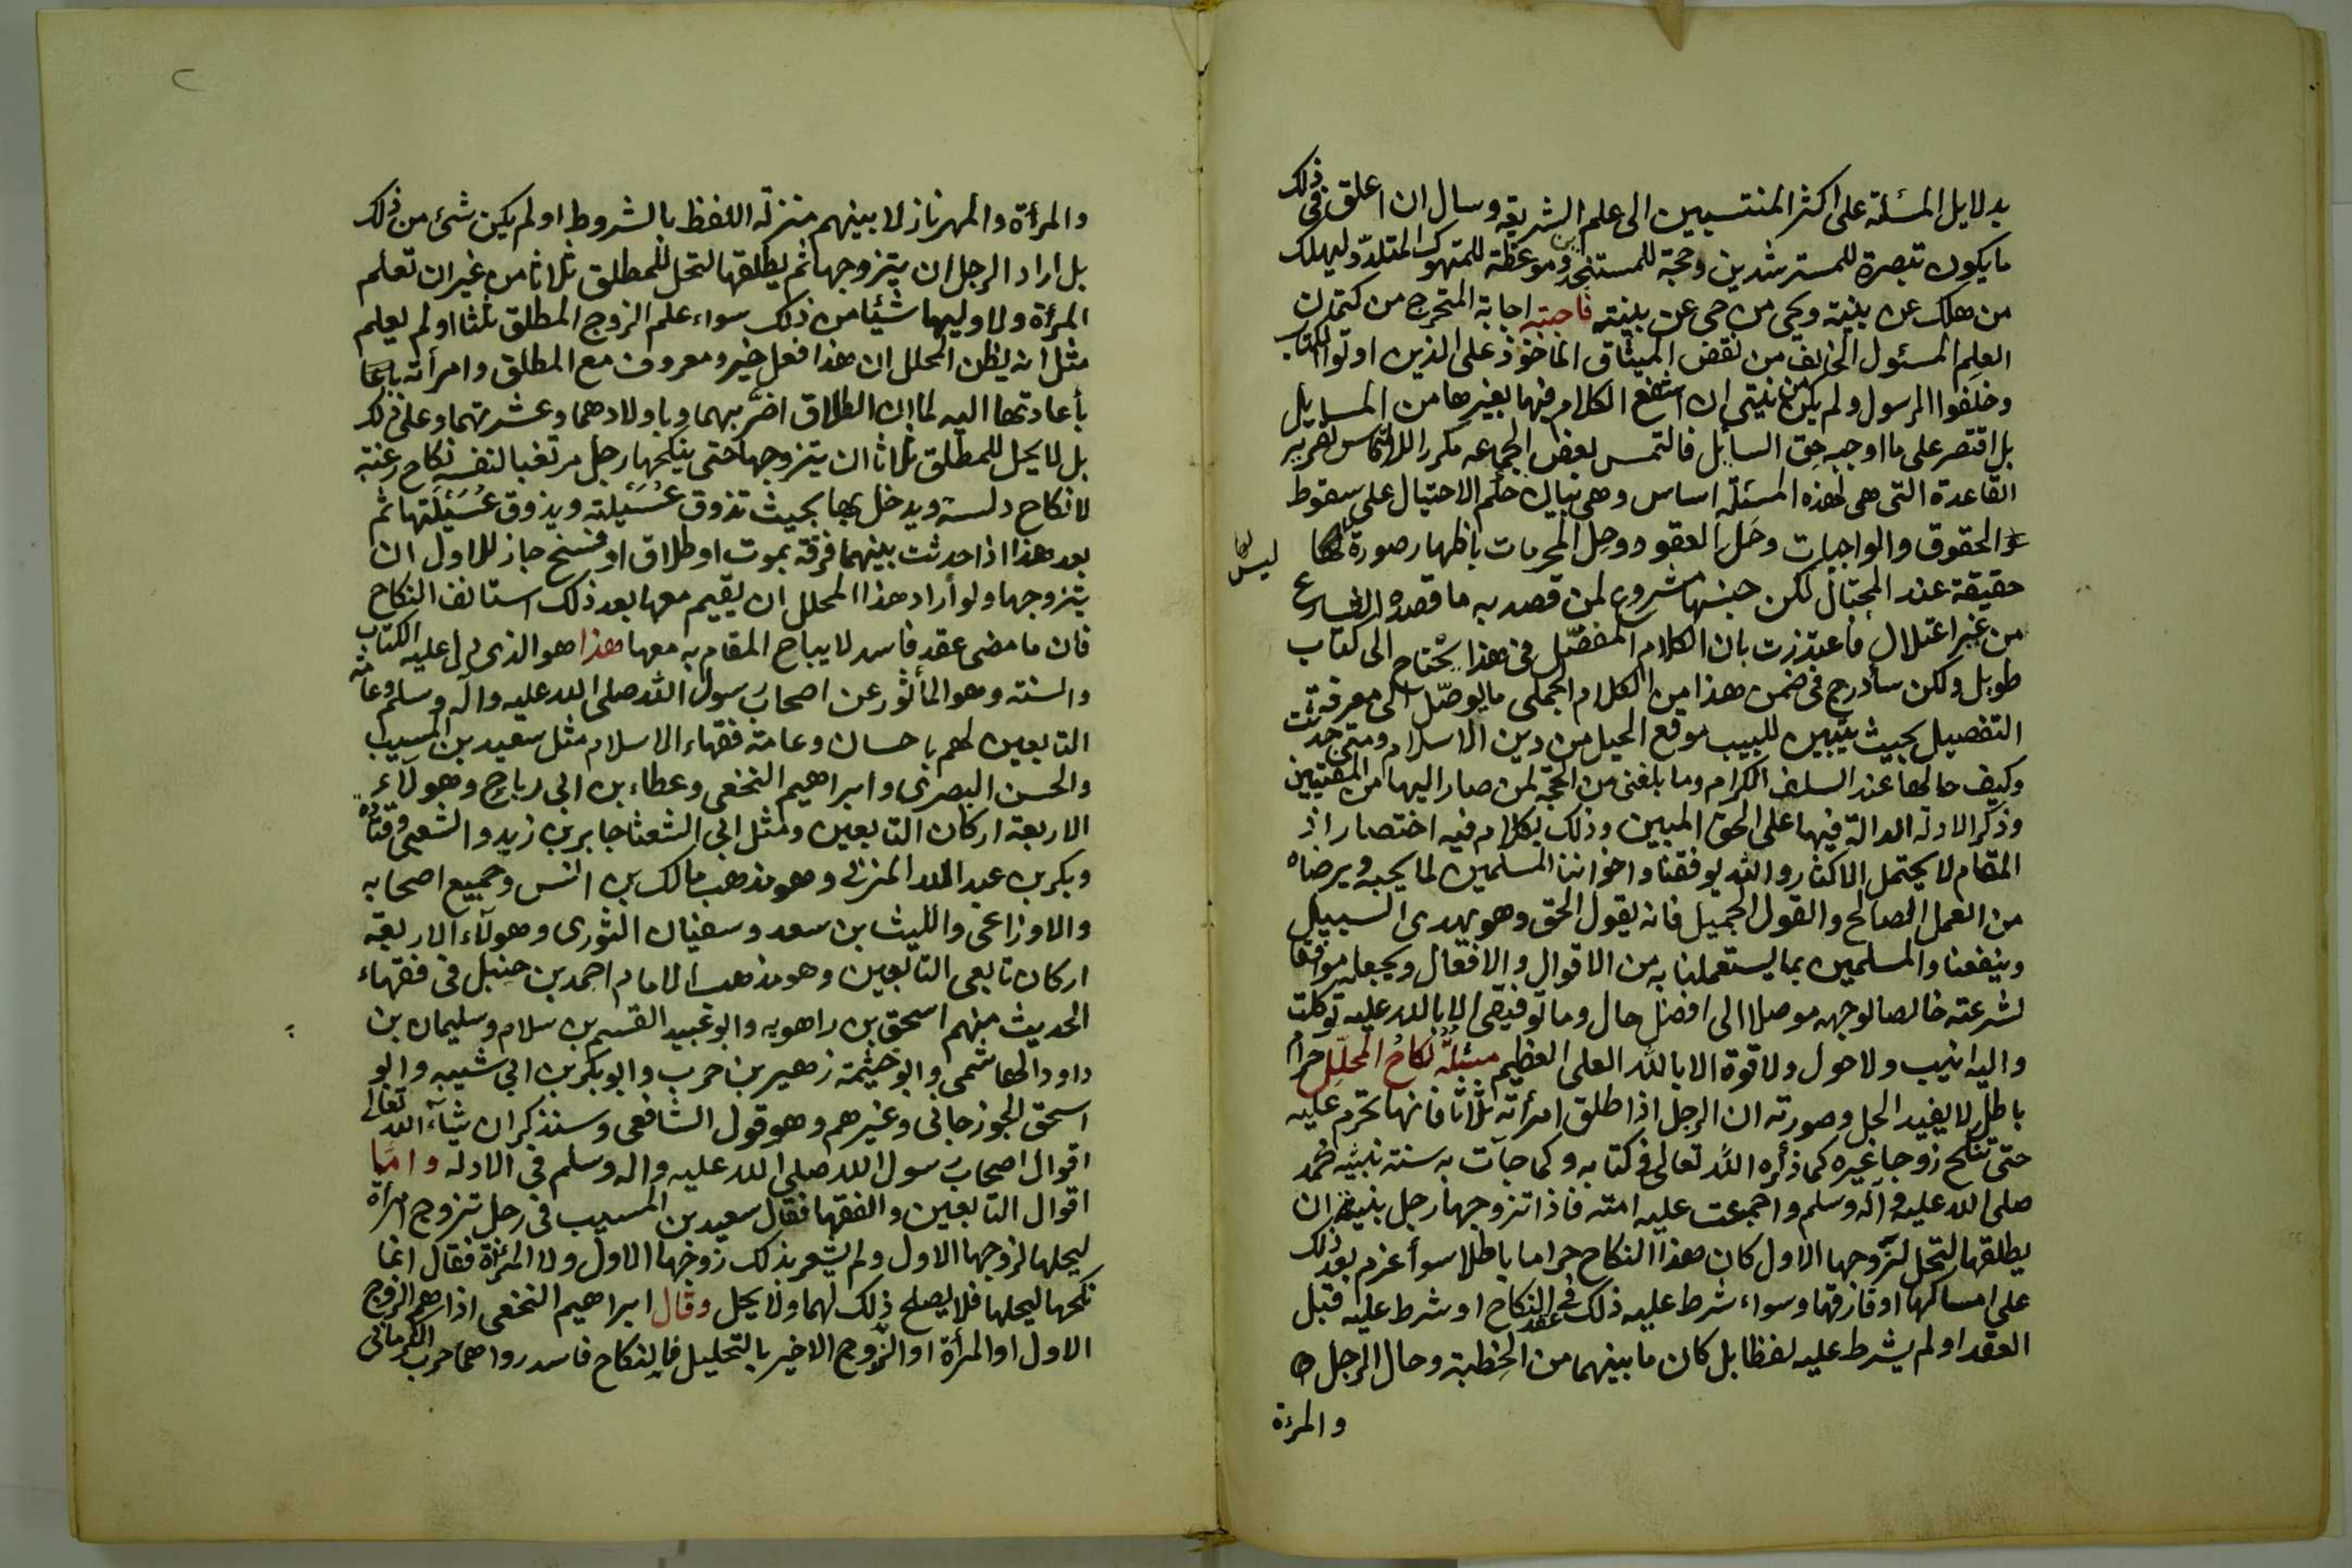 بدلايل المسئلة على اكثر المنتسبين الى علم الشريعة وسال ان اعلق في ذلك
ما يكون تبصرة للمسترشدين وحجة للمستنجدين وموعظة للمتهوك المتلدد ليهلك
من هلك عن بينة ويحى من حى عن بينة فاجبته اجابة المتحرج من كتمان
العلم المسئول الخايف من نقض الميثاق الماخوذ على الذين اوتوا الكتاب
وخلفوا الرسول ولم يكن من نيتي ان اشفع الكلام فيها بغيرها من المسايل
بل اقتصر على ما اوجبه حق السائل فالتمس بعض الجماعه مكررا للالتماس تقرير
القاعدة التى هى لهذه المسئلة اساس وهى بيان حكم الاحتيال على سقوط
الحقوق والواجبات وحل العقود وحل المحرمات باظهار صورة ليس لها
حقيقة عند المحتال لكن جنسها مشروع لمن قصد به ما قصده الشارع
من غير اعتلال فاعتذرت بان الكلام المفصّل في هذا يحتاج الى كتاب
طويل ولكن سأدرج في ضمن هذا من الكلام الجملى ما يوصّل الى معرفة
التفصيل بحيث يتبين للبيب موقع الحيل من دين الاسلام ومتى حدثت
وكيف حالها عند السلف الكرام وما بلغنى من الحجة لمن صار اليها من المفتيين
وذكر الادلة الدالة فيها على الحق المبين وذلك بكلام فيه اختصار اذ
المقام لا يحتمل الاكثار والله يوفقنا واخواننا المسلمين لما يحبه ويرضاه
من العمل الصالح والقول الجميل فانه يقول الحق وهو يهدى السبيل
وينفعنا والمسلمين بما يستعملنا به من الاقوال والافعال ويجعله موافقا
لشرعته خالصا لوجهه موصلا الى افضل حال وما توفيقى الا بالله عليه توكلت
واليه انيب ولا حول ولا قوة الا بالله العلى العظيم مسئلة نكاح المحلل حرام
باطل لا يفيد الحل وصورته ان الرجل اذا طلق امرأته ثلاثا فانها تحرم عليه
حتى تنكح زوجا غيره كما ذكره الله تعالى في كتابه وكما جآت به سنة نبيه محمد
صلى الله عليه وآله وسلم واجمعت عليه امته فاذا تزوجها رجل بنية ان
يطلقها لتحل لزوجها الاول كان هذا النكاح حراما باطلا سوأ عزم بعد ذلك
على امساكها او فارقها وسواء شرط عليه ذلك في عقد النكاح او شرط عليه قبل
العقد او لم يشرط عليه لفظا بل كان ما بينهما من الخطبة وحال الرجل
والمرءة
والمرأة والمهر نازلا بينهم منزلة اللفظ بالشروط او لم يكن شئ من ذلك
بل اراد الرجل ان يتزوجها ثم يطلقها لتحل للمطلق ثلاثا من غير ان تعلم
المرأة ولا وليها شيئا من ذلك سواء علم الزوج المطلق ثلثا او لم يعلم
مثل انه يظن المحلل ان هذا فعل خير ومعروف مع المطلق وامرأته
بأعادتها اليه لما ان الطلاق اضرّ بهما وباولادهما وعشرتهما وعلى ذلك
بل لا يحل للمطلق ثلاثا ان يتزوجها حتى ينكحها رجل مرتغبا لنفسه نكاح رغبة
لا نكاح دلسة ويدخل بها بحيث تذوق عُسَيلته ويذوق عُسَيلَتها ثم
بعد هذا اذا حدثت بينهما فرقة بموت او طلاق او فسخ جاز للاول ان
يتزوجها ولو أراد هذا المحلل ان يقيم معها بعد ذلك استانف النكاح
فان ما مضى عقد فاسد لا يباح المقام به معها هذا هو الذى دل عليه الكتاب
والسنة وهو المأثور عن اصحاب رسول الله صلى الله عليه وآله وسلم وعامة
التابعين لهم باحسان وعامة فقهاء الاسلام مثل سعيد بن المسيب
والحسن البصرى وابراهيم النخعى وعطاء بن ابى رباح وهولآء
الاربعة اركان التابعين ومثل ابى الشعثا جابر بن زيد والشعبى وقتادة
وبكر بن عبد الله المزنى وهو مذهب مالك بن انس وجميع اصحابه
والاوزاعى والليث بن سعد وسفيان الثورى وهولآء الاربعة
اركان تابعى التابعين وهو مذهب الامام احمد بن حنبل فى فقهاء
الحديث منهم اسحق بن راهويه وابو عبيد القسم بن سلام وسليمان بن
داود الهاشمى وابو خيثمة زهير بن حرب وابو بكر بن ابى شيبه وابو
اسحق الجوزجانى وغيرهم وهو قول الشافعى وسنذكر ان شآء الله تعالى
اقوال اصحاب رسول الله صلى الله عليه واله وسلم فى الادلة واما
اقوال التابعين والفقها فقال سعيد بن المسيب فى رجل تزوج امرأة
ليحلها لزوجها الاول ولم يشعر بذلك زوجها الاول ولا المرأة فقال انما
نكحها ليحلها فلا يصلح ذلك لهما ولا يحل وقال ابراهيم النخعى اذا هم الزوج
الاول او المرأة او الزوج الاخير بالتحليل فالنكاح فاسد رواهما حرب الكرمانى